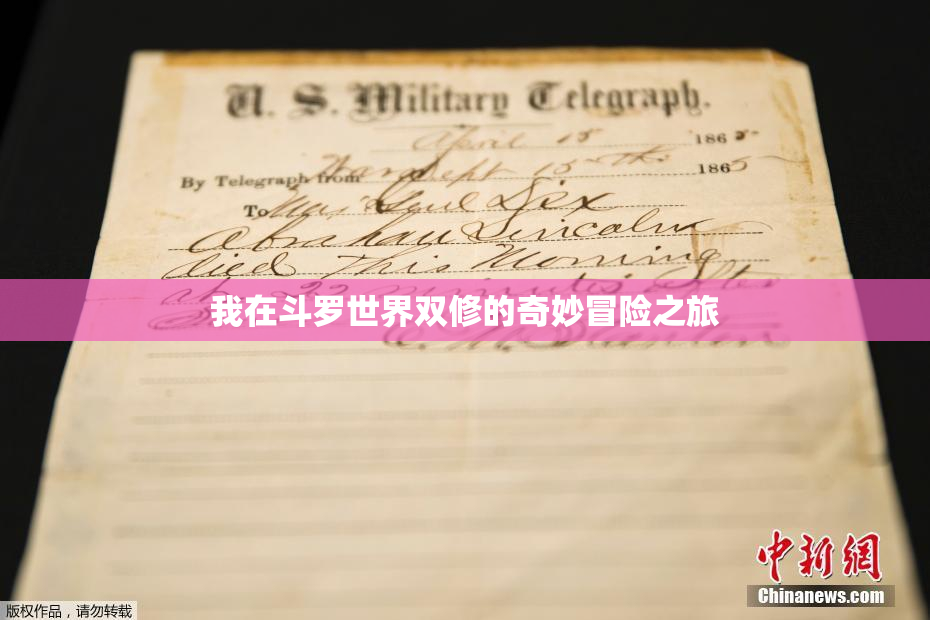 U. S. Military Telegraph.
April 15 1865
By Telegraph from War Dept 15th 1865
To Maj Genl Dix
Abraham Lincoln
died This Morning
at 22 minutes after
我在斗罗世界双修的奇妙冒险之旅
E. M. Stanton
中新网
Chinanews.com
版权作品,请勿转载